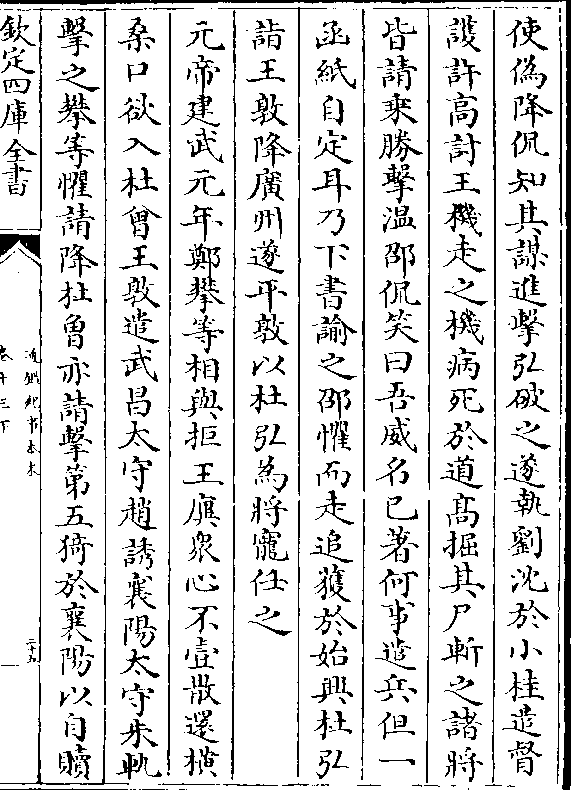 使偽降侃知其謀進擊弘破之遂執劉沈於小桂遣督
護許高討王機走之機病死於道髙掘其尸斬之諸將
皆請乘勝擊温邵侃笑曰吾威名已著何事遣兵但一
函紙自定耳乃下書諭之邵懼而走追獲於始興杜弘
詣王敦降廣州遂平敦以杜弘為將寵任之
元帝建武元年鄭攀等相與拒王廙衆心不壹散還横
桑口欲入杜曾王敦遣武昌太守趙誘襄陽太守朱軌
擊之攀等懼請降杜曾亦請擊第五猗於襄陽以自贖
欽定四庫全書
通鑑紀事本末
卷十三下
二十九